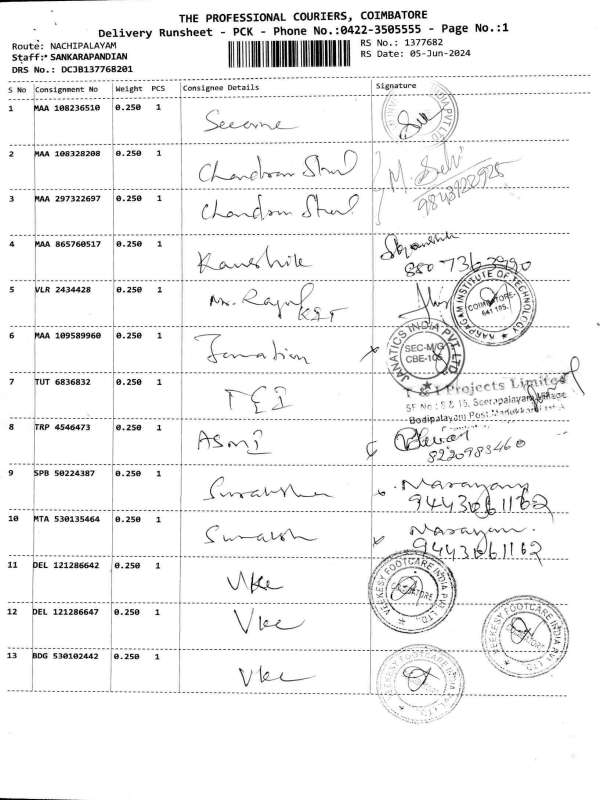 THE PROFESSIONAL COURIERS, COIMBATORE
Delivery Runsheet - PCK - Phone No.:0422-3505555 - Page No.:1
Route: NACHIPALAYAM
Staff: SANKARAPANDIAN
DRS No.: DCJB137768201
RS No.: 1377682
RS Date: 05-Jun-2024
S No Consignment No Weight PCS Consignee Details Signature
1 MAA 108236510 0.250 1
2 MAA 108328208 0.250 1 Chandran Steel M. Selvi
9843122925
3 MAA 297322697 0.250 1 Chandran Steel
4 MAA 865760517 0.250 1 Kaushik
880 736 3990
5 VLR 2434428 0.250 1 Mr. Ragul KIT
KARPAGAM INSTITUTE OF TECHNOLOGY
COIMBATORE-
641 105.
6 MAA 109589960 0.250 1
JANATICS INDIA PVT. LTD.
SEC-M/G
CBE-105
7 TUT 6836832 0.250 1
T & I Projects Limited
SF No: 8 & 15, Seerapalayam Village
Bodipalayam Post
8 TRP 4546473 0.250 1
8220983460
9 SPB 50224387 0.250 1 Narayanan
9443061162
10 MTA 530135464 0.250 1 Narayanan
9443061162
11 DEL 121286642 0.250 1 Vkc
VEEKESY FOOTCARE INDIA PVT. LTD.
COIMBATORE
12 DEL 121286647 0.250 1 Vkc
VEEKESY FOOTCARE INDIA PVT. LTD.
13 BDG 530102442 0.250 1 Vkc
VEEKESY FOOTCARE INDIA PVT. LTD.